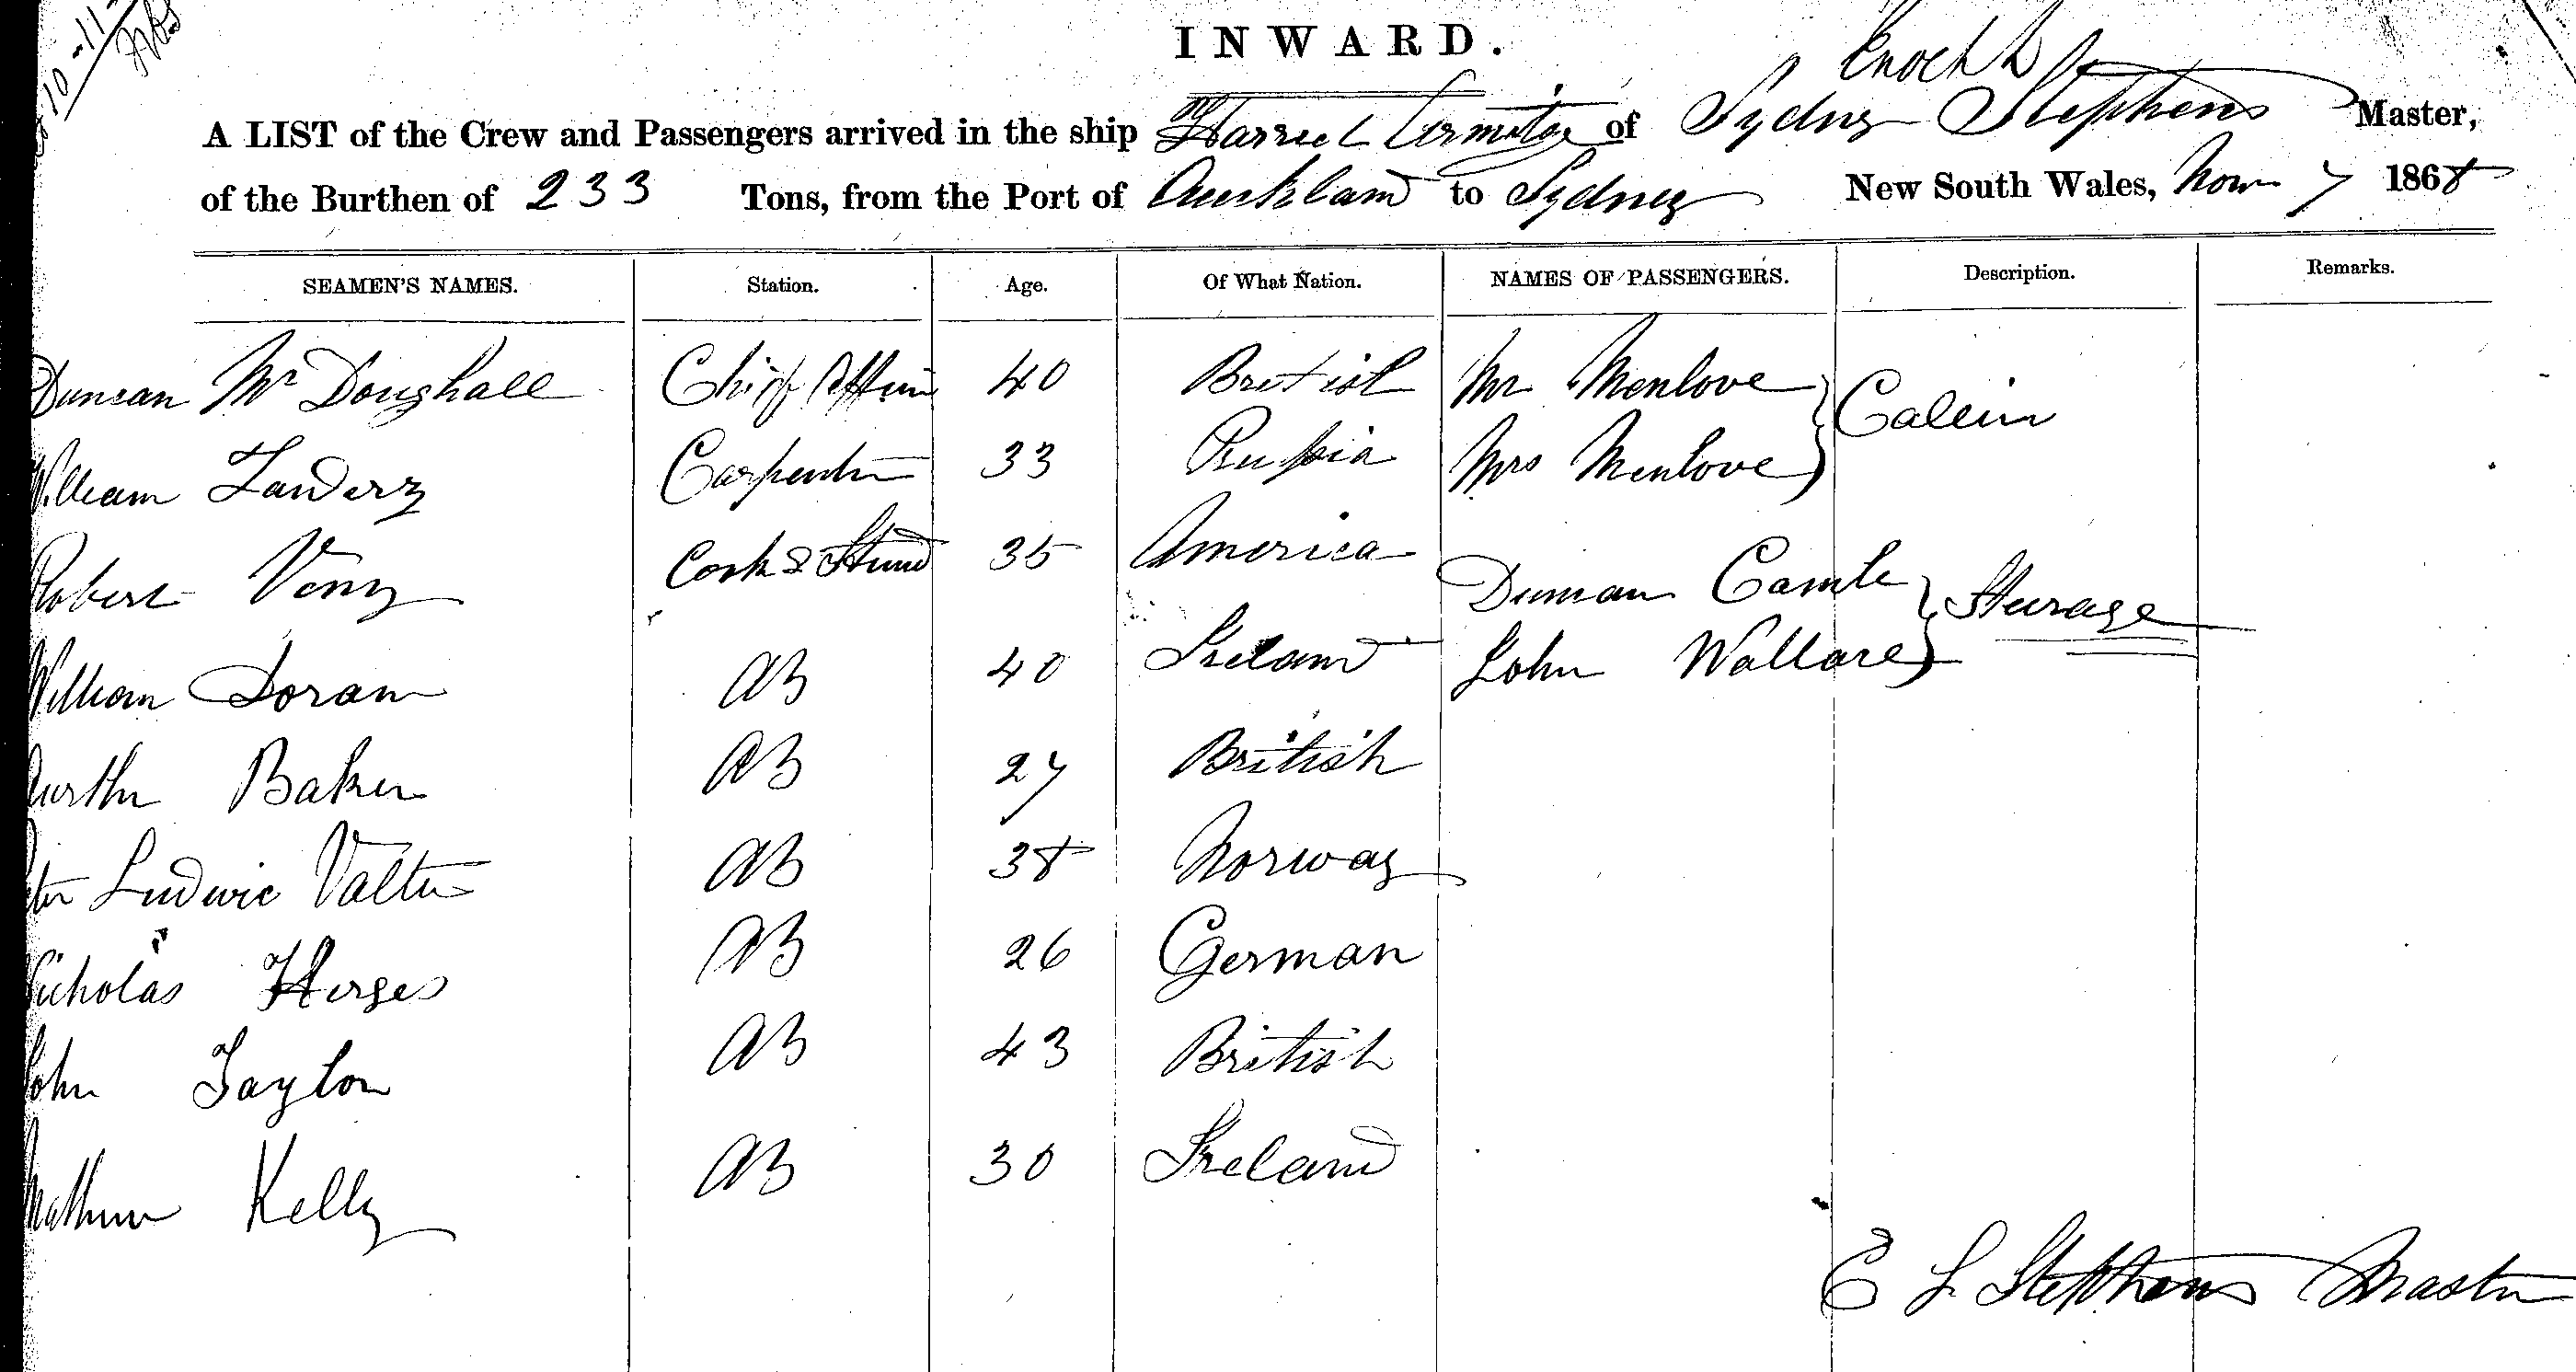 INWARD.
Enoch L
A LIST of the Crew and Passengers arrived in the ship Harriet Armitage of Sydney Stephens Master,
of the Burthen of 233 Tons, from the Port of Auckland to Sydney New South Wales, Nov 7 1868
SEAMEN'S NAMES. Station. Age. Of What Nation. NAMES OF PASSENGERS. Description. Remarks.
Duncan Mc Doughall Chief Officer 40 British Mr Menlove Cabin
William 33 Carpenter Prussia Mrs Menlove
Robert Veny Cook & Steward 35 America Duncan Steerage
William Doran AB 40 Ireland John Wallace
Arthur Baker AB 27 British
Peter Ludwic Valter AB 38 Norway
Nicholas AB 26 German
John Taylor AB 43 British
Mathew Kelly AB 30 Ireland
E L Stephens Master